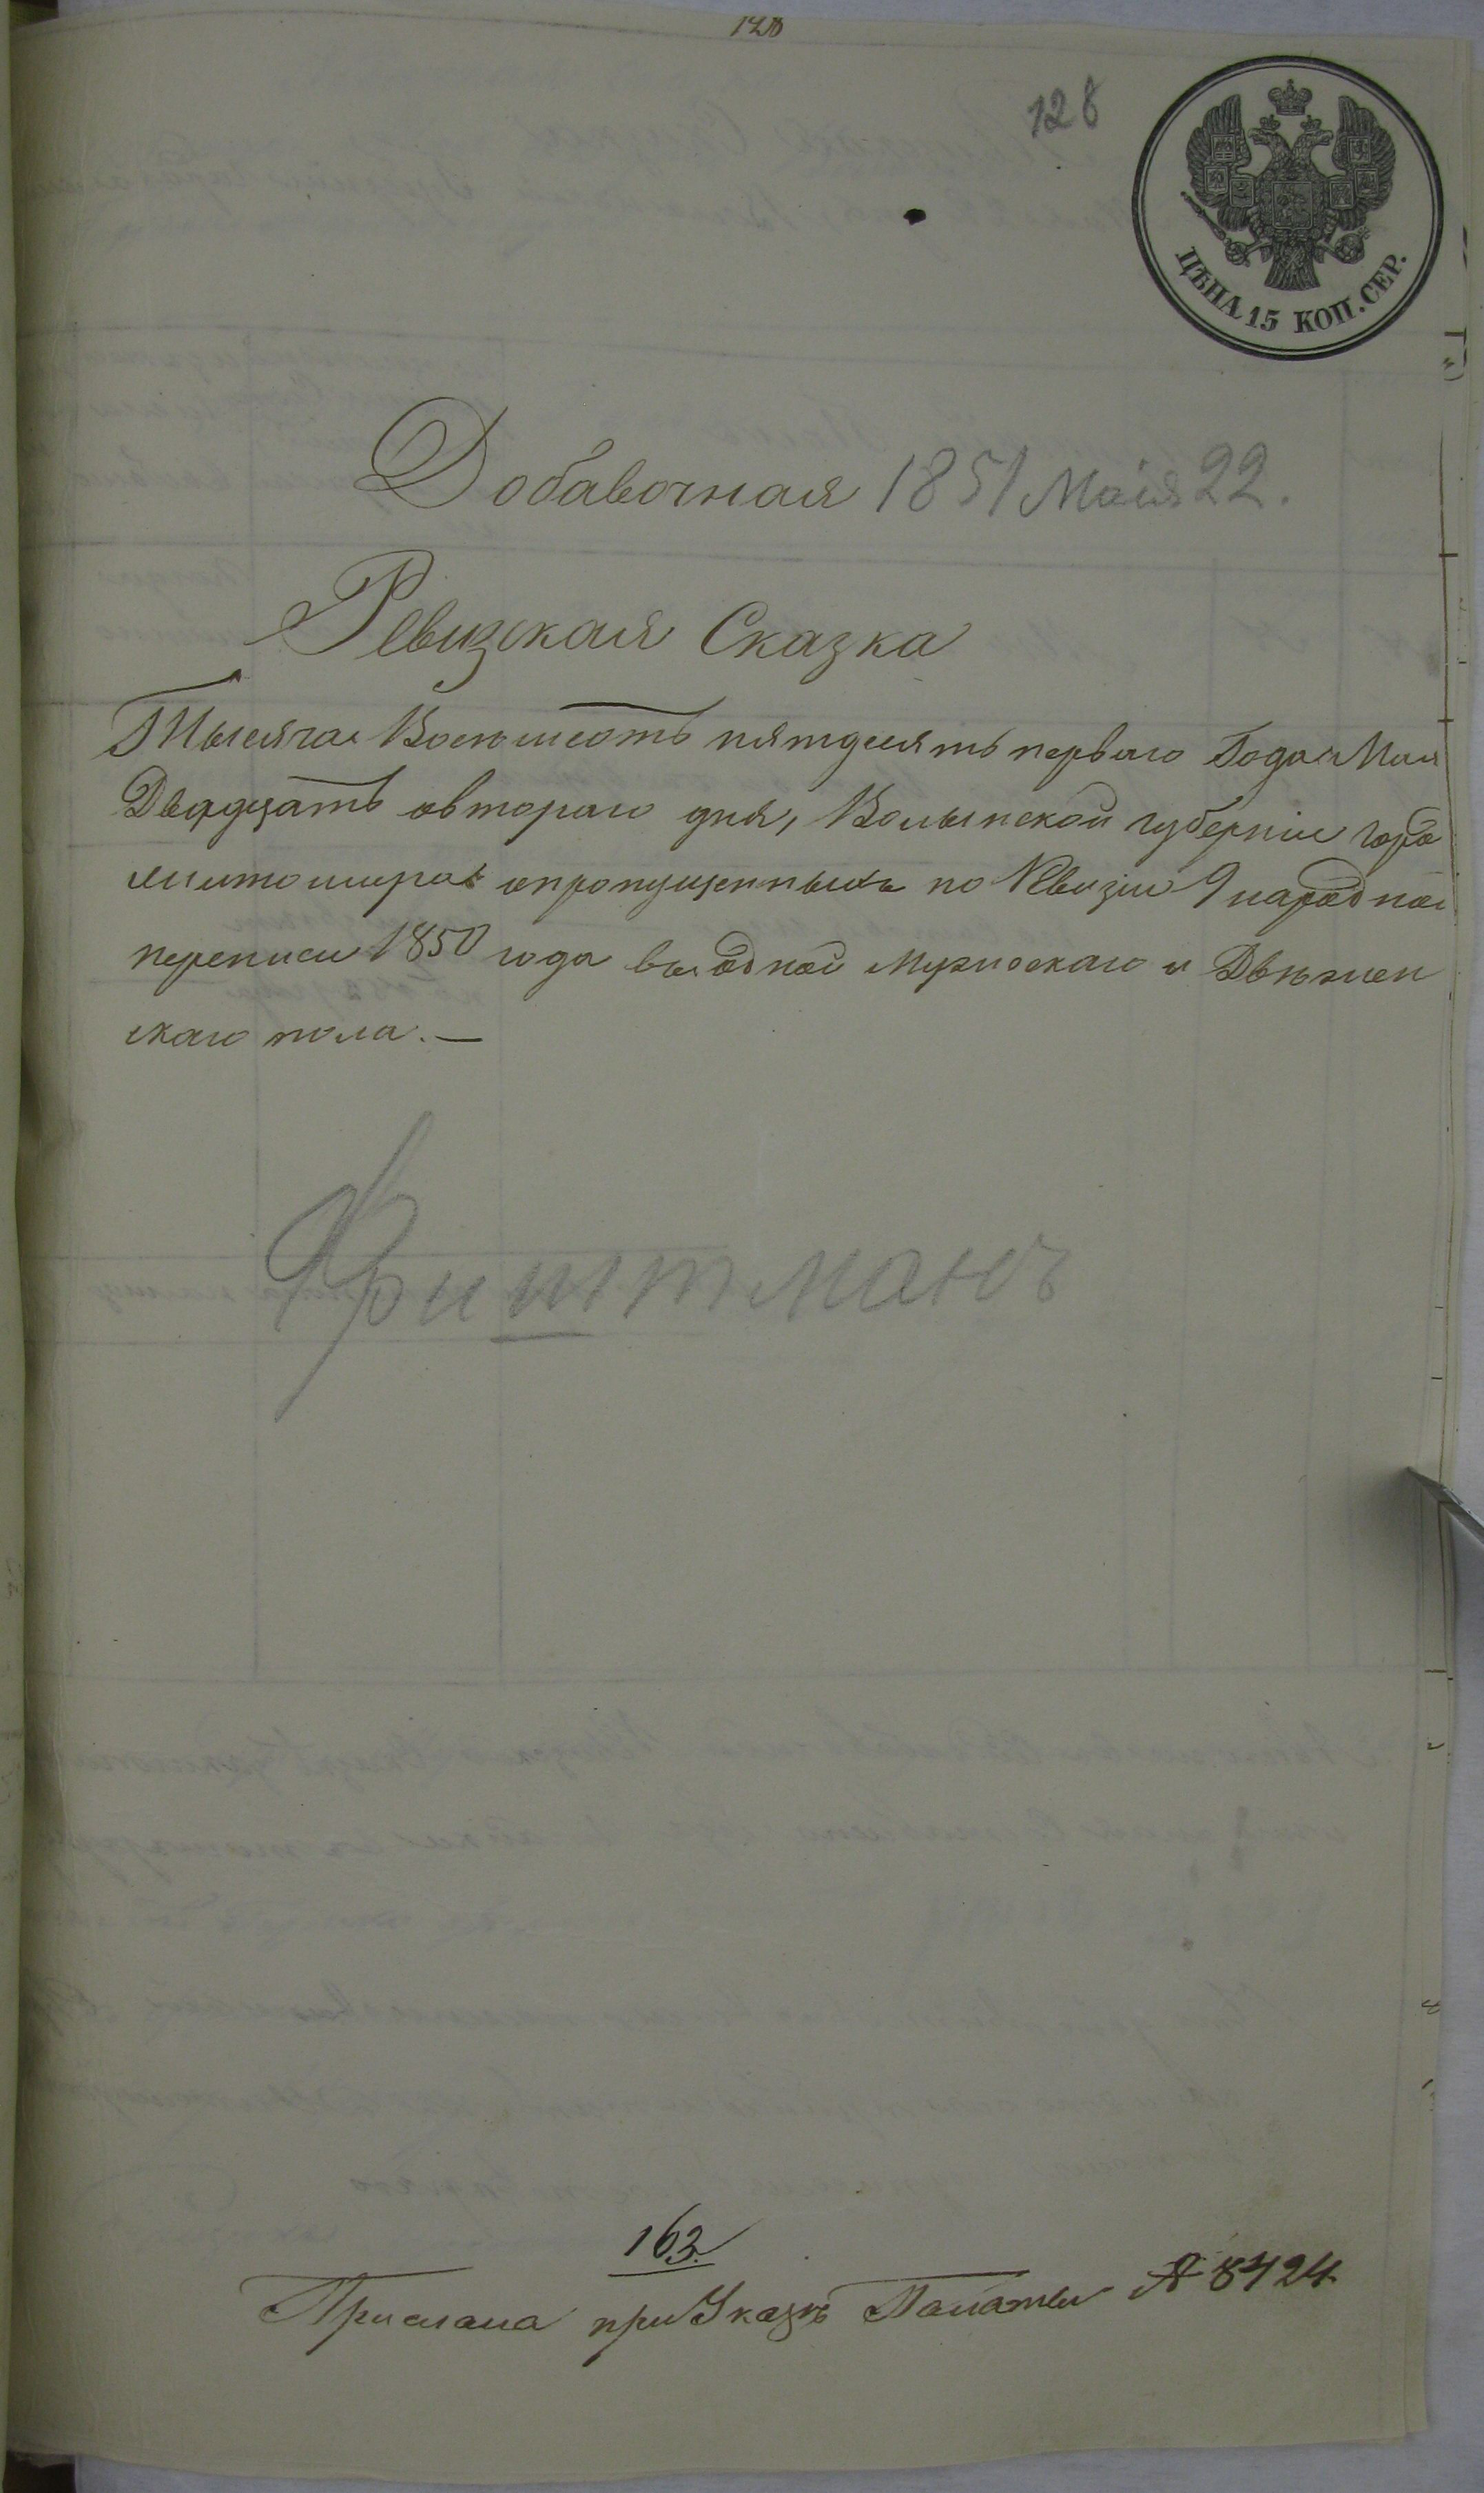 128
128
ЦѢНА 15 КОП. СЕР.
Добавочная 1851 Маія 22.
Ревизская Сказка
Тысяча Восемьсотъ пятдесятъ перваго Года Мая
Двадцать овтораго дня, Волынской губерніи горо
Житомира опропущенныхъ по Ревизіи 9 народной
переписи 1850 года мужескаго и Двѣ женъ
скаго пола. —
Фиштманъ
163.
Прислана при Указѣ Палаты № 8424